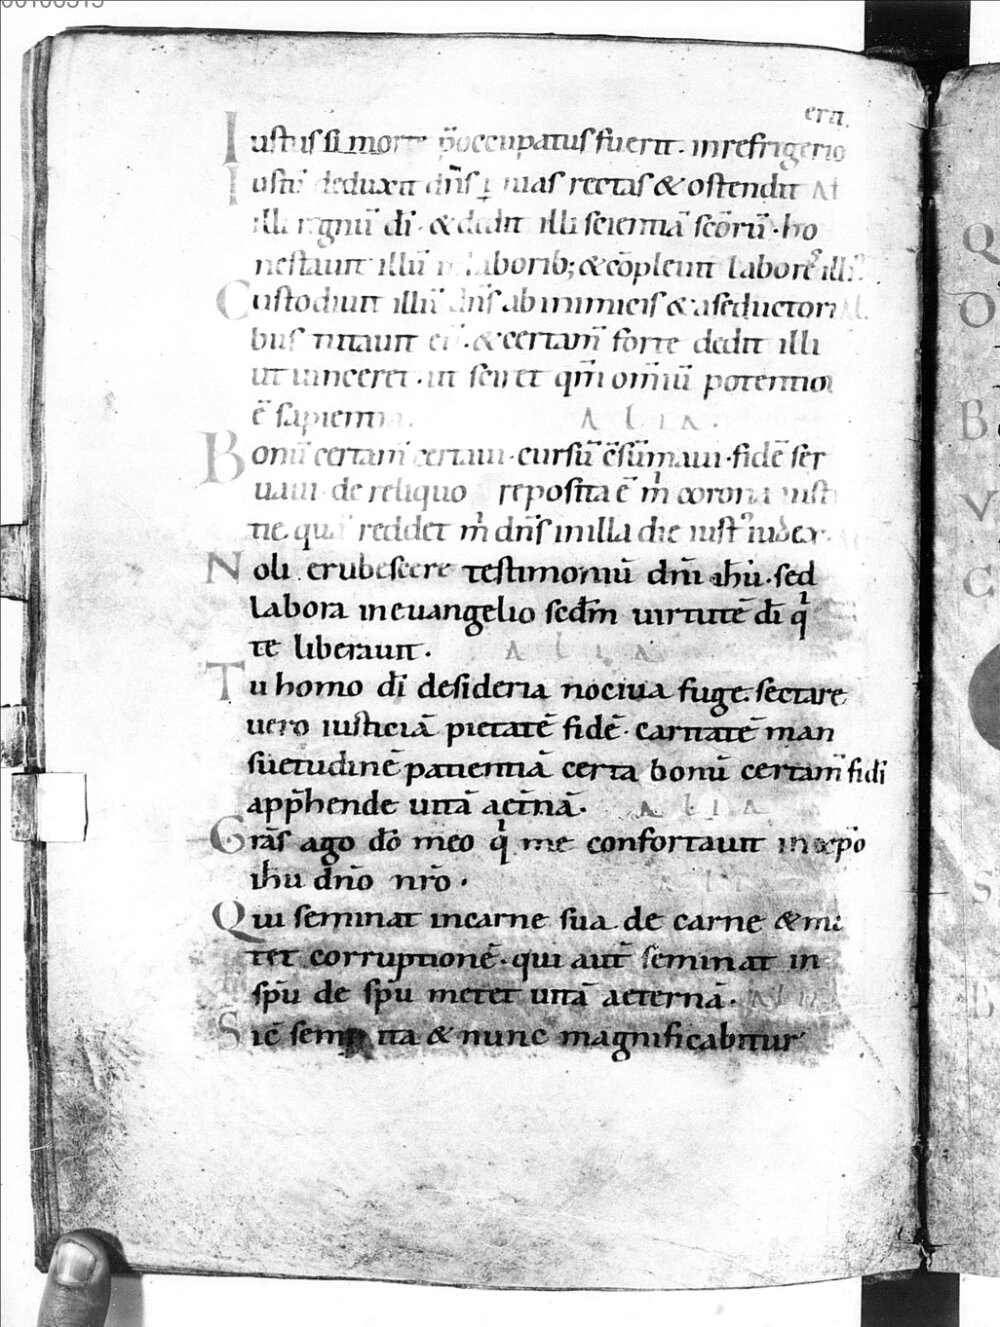 erit.
Iustus si morte p̄occupatus fuerit. in refrigerio
Iustū deduxit dn̄s p uias rectas & ostendit Al
illi regnū dī · & dedit illi scientiā scōrū · ho
nestauit illū in laborib; & cōpleuit labores illiꝰ
Custodiuit illū dn̄s ab inimicis & a seductori Al.
bus tutauit eū · & certam̄ forte dedit illi
ut uinceret · ut sciret qm̄ omiū potentior
ē sapientia. ALIA.
Bonū certam̄ certaui · cursū c̄sūmaui · fidē ser
uaui de reliquo reposita ē m̄ corona iusti
tie quā reddet m̄ dn̄s in illa die iustꝰ iudex · Al
Noli erubescere testimoniū dn̄i ih̄u · sed
labora in euangelio sedm̄ uirtutē dī qi
te liberauit · ALIA
Tu homo dī desideria nociua fuge sectare
uero iusticiā pietatē fidē · caritatē man
suetudinē patientiā certa bonū certam̄ fidi
app̄hende uitā aet̄nā · ALIA
Grās ago dō meo qi me confortauit in xp̄o
ih̄u dn̄o nr̄o ·
Qui seminat in carne sua de carne & me
tet corruptionē · qui aut̄ seminat in
sp̄u de sp̄u metet uitā aeternā · Alia
Sic̄ semp ita & nunc magnificabitur